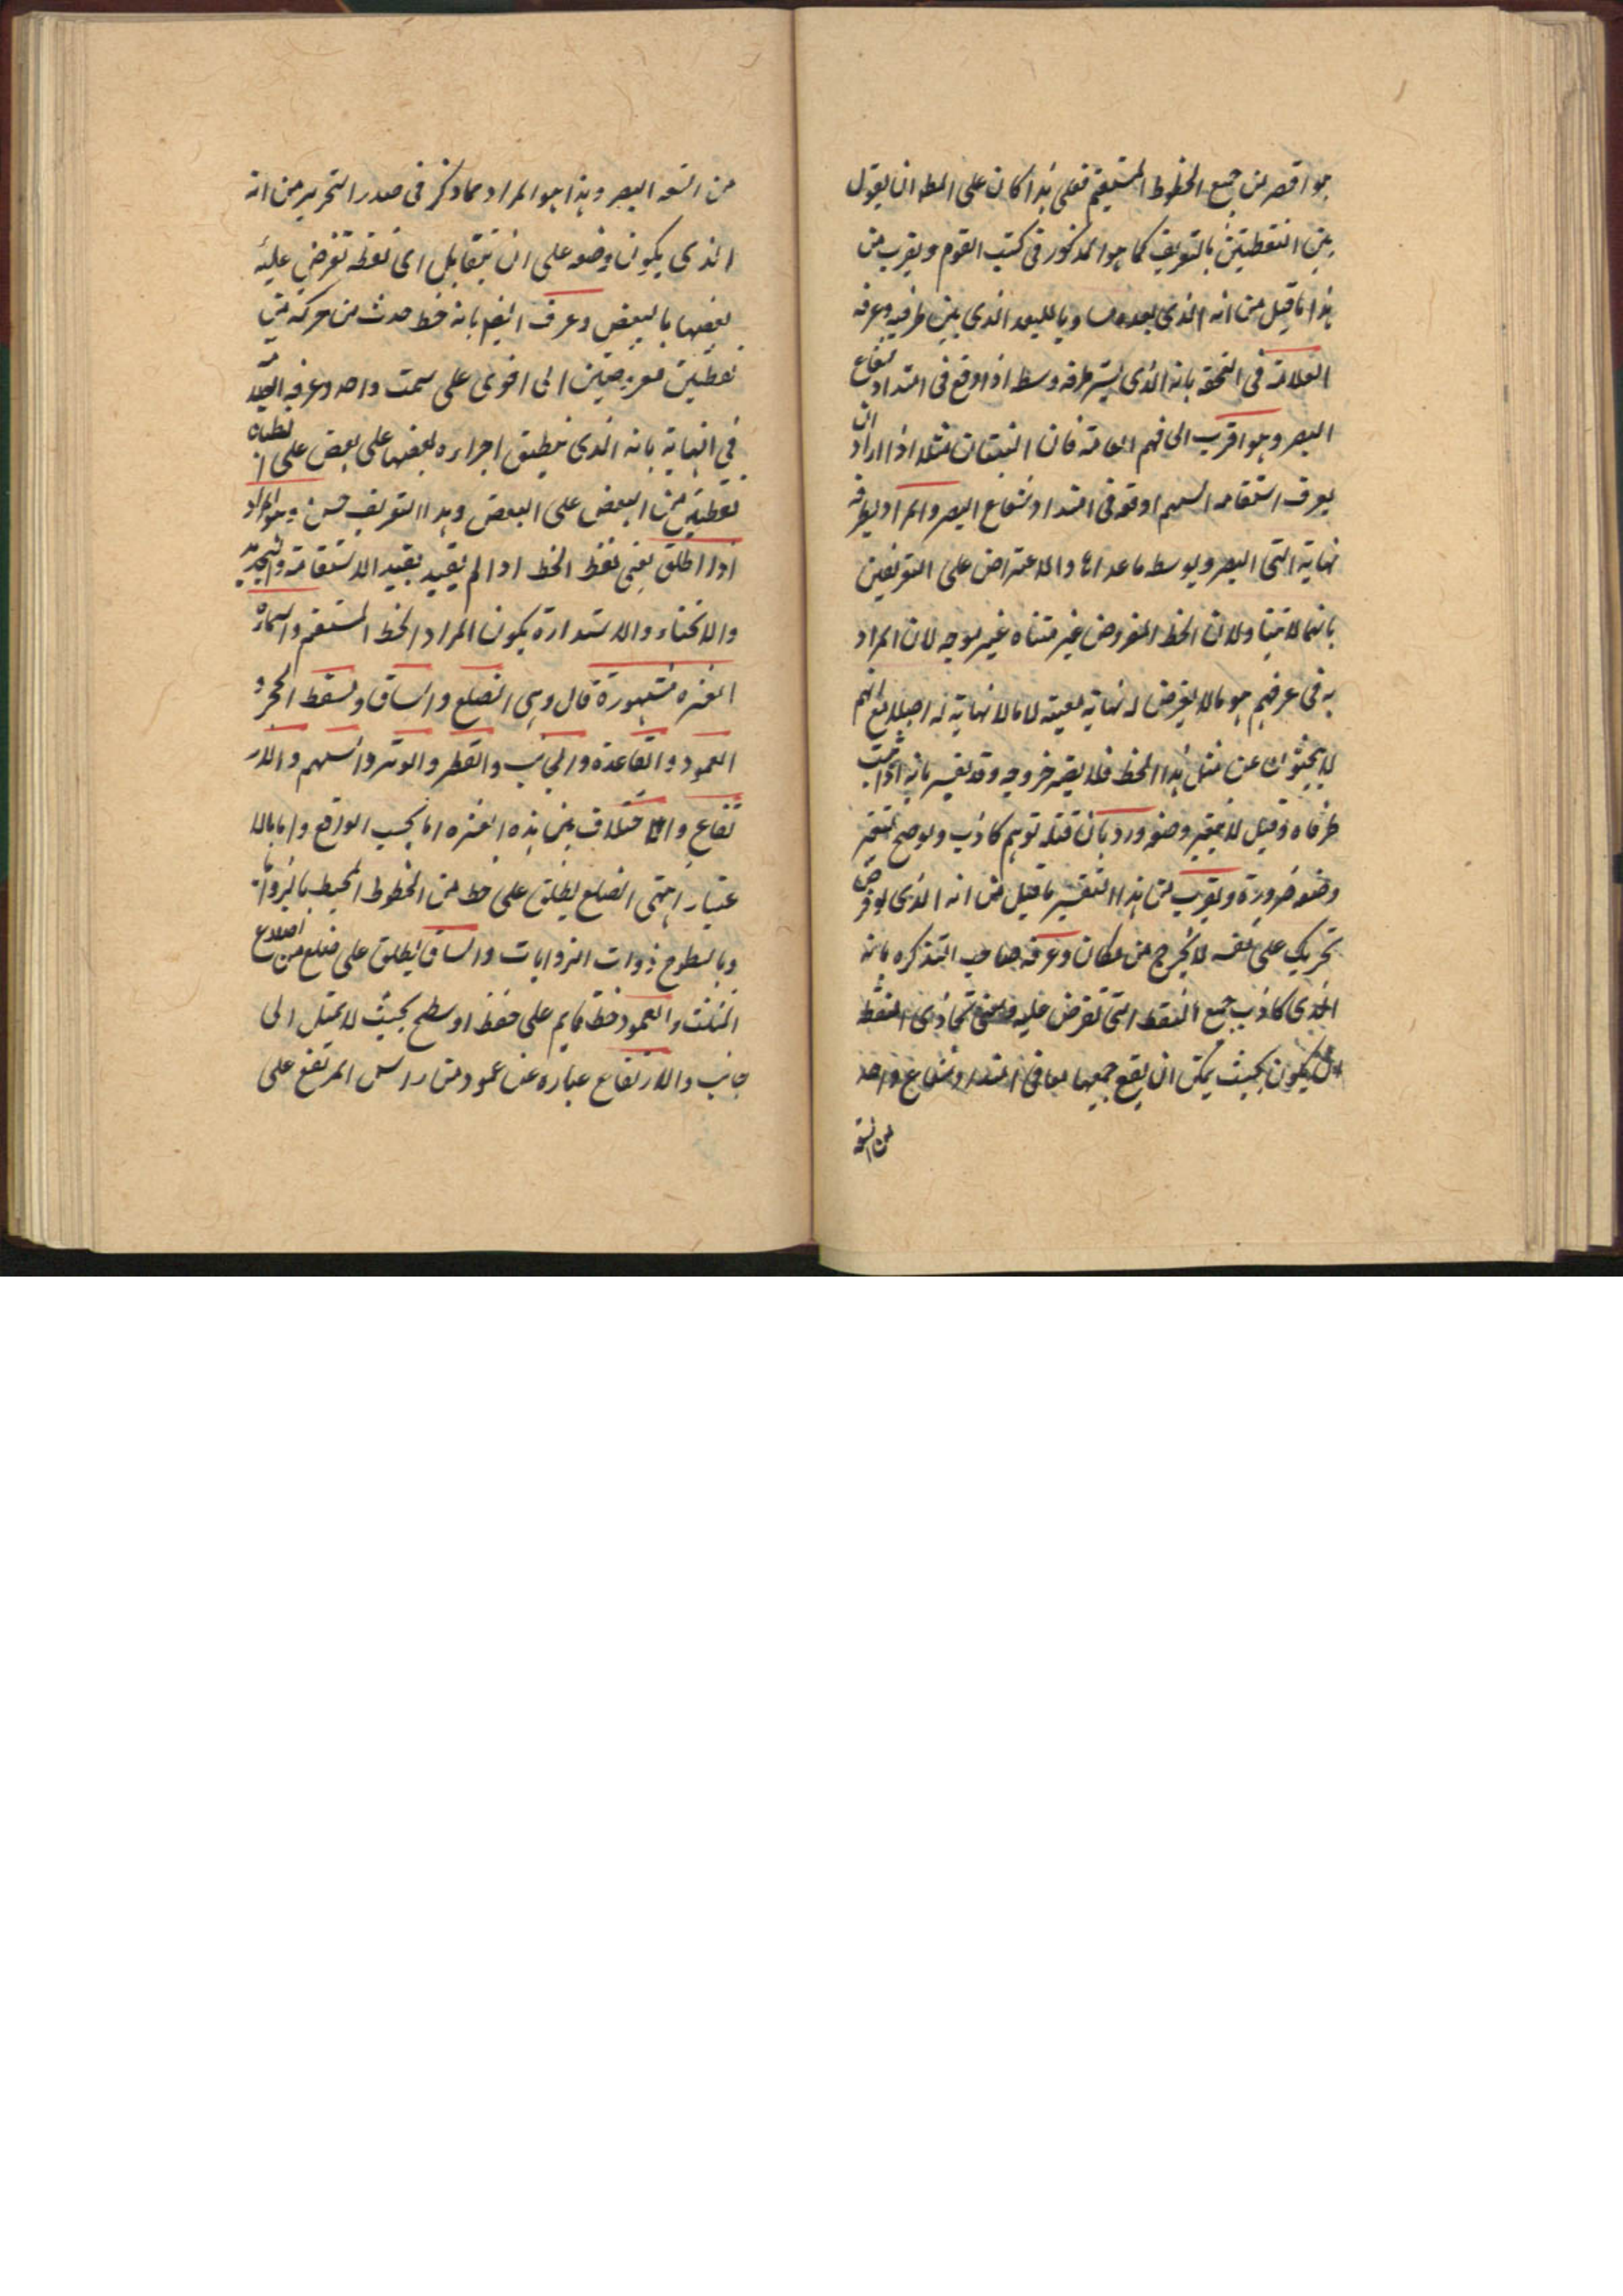 هو اقصر من جميع الخطوط المستقيم فعلى هذا كان على المط ان يقول
بين النقطتين بالتعريف كما هو المذكور فى كتب القوم ويقرب من
هذا ما قيل من انه الذى بعده مساويا للبعد الذى بين طرفيه وعرفه
العلامة فى التحفة بانه الذى يستر طرفه وسطه اذا وقع فى امتداد شعاع
البصر وهو اقرب الى فهم العامة فان مثلا اذا اراد ان
يعرف استقامه السهم اوقعه فى امتداد شعاع البصر والمراد بطرفه
نهاية التى البصر وبوسطه ما عداها والاعتراض على التعريفين
بانهما لا يتناولان الخط المفروض غير متناه غير موجه لان المراد
به فى عرفهم هو ما لا يفرض له نهاية معينه لا ما لا نهاية له اصلا مع انهم
لا يبحثون عن مثل هذا الخط فلا يضر خروجه وقد يفسر بانه اذا اثبت
طرفاه وفتل لا يتغير وضعه ورد بان فتله توهم كاذب ولو صح لتغير
وضعه ضرورة ويقرب من هذا التفسير ما قيل من انه الذى لو فرض
تحريك على نفسه لا يخرج من مكان وعرفه صاحب التذكره بانه
الذى يحاذى جميع النقط التى تفرض عليه تحاذى النقط
ان يكون بحيث يمكن ان يقع جميعها معا فى امتداد شعاع واحد
من اشعة
من اشعه البصر وهذا هو المراد مما ذكر فى صدر التحرير من انه
الذى يكون وضعه على ان يتقابل اى نقطه تفرض عليه
بعضها بالبعض وعرف ايضا بانه خط حدث من حركه من
نقطتين مفروضتين الى اخرى على سمت واحد وعرفه
فى النهاية بانه الذى ينطبق اجزاءه بعضها على بعض على
نقطتين من البعض على البعض وهذا التعريف حسن وهو المراد
اذا اطلق يعنى لفظ الخط اذا لم يقيد بقيد الاستقامة
والانحناء والاستدارة يكون المراد الخط المستقيم واسماؤه
العشره مشهورة قال وهى الضلع والساق ومسقط الحجر و
العمود والقاعدة والجانب والقطر والوتر والسهم والار
تفاع والاختلاف بين هذه العشره اما بحسب الواقع واما بالا
عتبار انتهى الضلع يطلق على خط من الخطوط المحيط بالزوايا
وبالسطوح ذوات الزوايات والساق يطلق على ضلع من اضلاع
المثلث والعمود خط قايم على خط او سطح بحيث لا يميل الى
جانب والارتفاع عباره عن عمود من راس المرتفع على